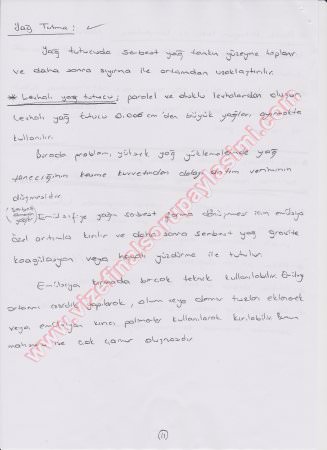 Yağ Tutma: ✓
Yağ tutucuda serbest yağ tankın yüzeyine toplanır
ve daha sonra sıyırma ile ortamdan uzaklaştırılır.
* Levhalı yağ tutucu; paralel ve oluklu levhalardan oluşan
Levhalı yağ tutucu 0.006 cm'den büyük yağları ayırmakta
kullanılır.
Burada problem, yüksek yağ yüklemelerinde yağ
taneciğinin kesme kuvvetinden dolayı arıtım veriminin
düşmesidir.
Emülsifiye yağın serbest forma dönüşmesi için emülsiyon
özel arıtımla kırılır ve daha sonra serbest yağ gravite
koagülasyon veya havalı yüzdürme ile tutulur.
Emülsiyon kırmada birçok teknik kullanılabilir.
ortamı asidik yapılarak, alum veya demir tuzları eklenerek
veya emülsiyon kırıcı polimerler kullanılarak kırılabilir. Bunun
mahzuru ise çok çamur oluşmasıdır
11
www.vizefinalsorupaylasimi.com